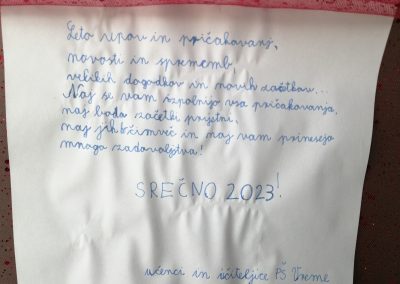 Leto upov in pričakovanj,
novosti in sprememb
velikih dogodkov in novih začetkov...
Naj se vam izpolnijo vsa pričakovanja,
naj bodo začetki prijetni,
naj jih bo čimveč in naj vam prinesejo
mnogo zadovoljstva!
SREČNO 2023!
učenci in učiteljice PŠ Vreme